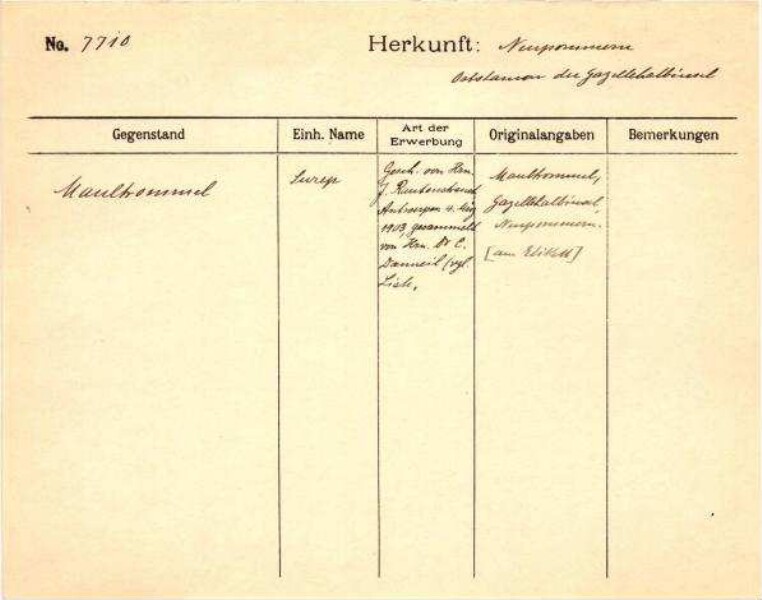 No. 7710
Herkunft: Neupommern
der Gazellehalbinsel
Gegenstand
Einh. Name
Art der Erwerbung
Originalangaben
Bemerkungen
Maultrommel
Gesch. von Hrn.
J. Rautenstrauch
Antwerpen 4. Mrz
1903, gesammelt
von Hrn. Dr C.
Danneil (vgl.
Liste.
Maultrommel,
Gazellehalbinsel,
Neupommern.
[am Etikett]